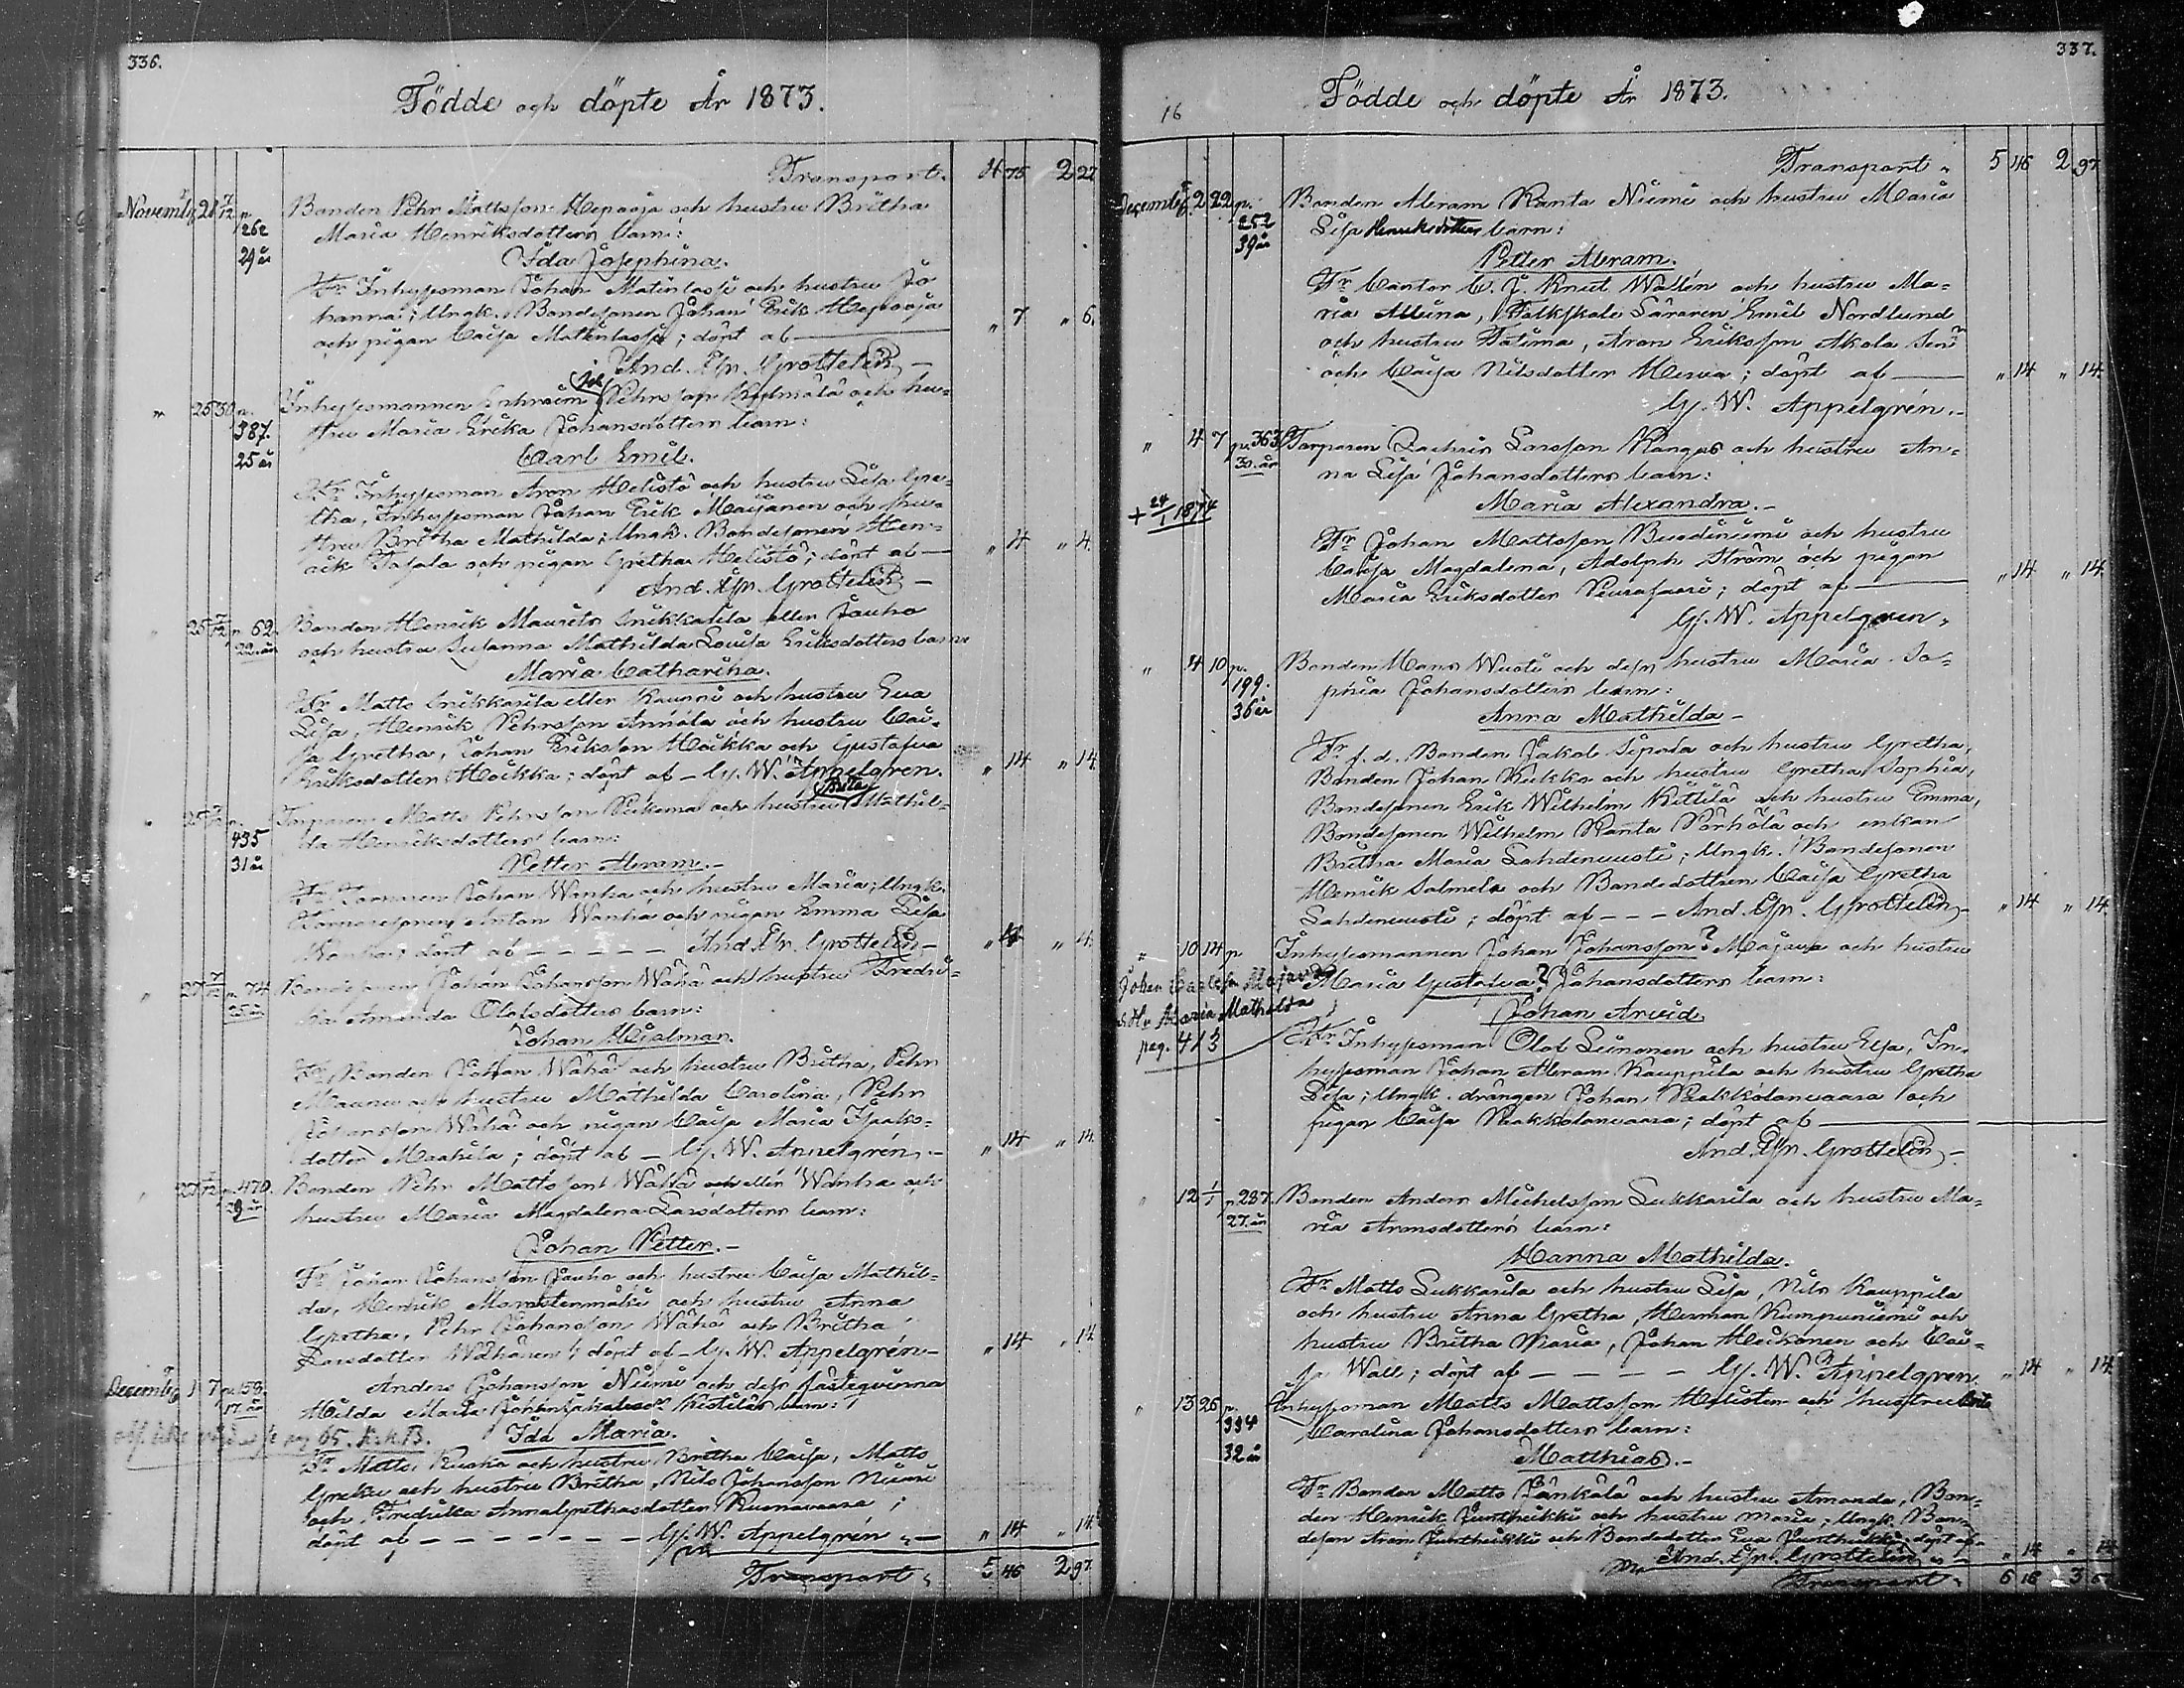 336.
Födde och döpte År 1873.
Transport. 4 75 2 27
Novemb 21 7/12 p. 262 29 år Bonden Pehr Mattsson Hepaoja och hustru Britha
Maria Henriksdotters barn:
Ida Josephina.
Fr Inhysesman Johan Matinlassi och hustru Jo
hanna; Ungk. Bondesonen Johan Erik Hepaoja
och pigan Caisa Matinlassi; döpt af — „ 7 „ 6.
And. Gr. Grottelin —
„ 25 30 p. 387. 25 år Inhysesmannen Enhraim Pehrsson Kylmälä och hu-
stru Maria Erika Johansdotters barn:
Carl Emil.
Fr Inhysesman Aron Helistö och hustru Lisa Gre-
tha, Inhysesman Johan Erik Maijanen och hu-
stru Britha Mathilda; Ungk. Bondesonen Hen-
rik Tasala och pigan Gretha Helistö; döpt af — „ 4 „ 4.
And. Gr. Grottelin —
„ 25 7/12 p. 62. 22 år Bonden Henrik Maurits Cuikkasila eller Jauho
och hustru Susanna Mathilda Lovisa Eriksdotters barn
Maria Catharina.
Fr Matts Cuikkasila eller Kauppi och hustru Eva
Lisa, Henrik Pehrsson Annala och hustru Cai-
sa Gretha, Johan Eriksson Hoikka och Gustafva
Eriksdotter Hoikka; döpt af — G. W. Appelgren. „ 14 „ 14
Brita
„ 25 p. 435 31 år Torparen Matts Pehrsson Peikema och hustru Mathil-
da Henriksdotters barn:
Petter Abram. —
Fr Torparen Johan Wanha och hustru Maria; Ungk.
Torparesonen Anton Wanha och pigan Emma Lisa
Wanha; döpt af — — — — And. Gr. Grottelin — „ 4 „ 4.
„ 27 7/12 p. 74. 25 år Bondesonen Johan Johansson Wähä och hustru Fredri-
ka Amanda Olofsdotters barn:
Johan Hjalmar.
Fr Bonden Johan Wähä och hustru Britha, Pehr
Maunu och hustru Mathilda Carolina, Pehr
Johansson Wähä och pigan Caisa Maria Isaks-
dotter Maahila; döpt af — G. W. Appelgrén. — „ 14 „ 14
„ 27 p. 470. Bonden Pehr Mattsson Wälä eller Wanha och
hustru Maria Magdalena Larsdotters barn:
Johan Petter. —
Fr Johan Johansson Jauho och hustru Caisa Mathil-
da, Henrik Morottenmäki och hustru Anna
Gretha, Pehr Johansson Wähä och Britha
Larsdotter Wälhänen; döpt af — G. W. Appelgrén — „ 14 „ 14
Decemb 1 7 p. 158. 17 år Anders Johansson Niemi och dess fästeqvinna
Hilda Maria Kistilä barn:
Ida Maria.
Fr Matts Ruska och hustru Britha Caisa, Matts
Greku och hustru Britha, Nils Johansson Niemi
och Fredrika Annagrethasdotter Kuonavaara;
döpt af — — — — — G. W. Appelgrén — „ 14 „ 14
Transport „ 5 46 2 97.
337.
16
Födde och döpte År 1873.
Transport „ 5 46 2 97
Decemb 2 22 p. 252 39 år Bonden Abram Ranta Niemi och hustru Maria
Lisa Henriksdotters barn:
Petter Abram.
Fr Cantor C. J. Knut Wallén och hustru Ma-
ria Allina, Folkskole Läraren Emil Nordlund
och hustru Fatima, Aron Eriksson Akola
och Caisa Nilsdotter Herva; döpt af — „ 14 „ 14
G. W. Appelgrén. —
„ 4 7 p. 363 30 år Torparen Zachris Larsson Kangas och hustru An-
na Lisa Johansdotters barn:
+ 24/1 1874 Maria Alexandra. —
Fr Johan Mattsson Buodiniemi och hustru
Caisa Magdalena, Adolph Ström och pigan
Maria Eriksdotter Peurasaari; döpt af — „ 14 „ 14.
G. W. Appelgren.
„ 4 10 p. 199. 36 år Bonden Hans Wuoti och dess hustru Maria So-
phia Johansdotters barn:
Anna Mathilda —
Fr f. d. Bonden Jakob Sipola och hustru Gretha,
Bonden Johan Kukko och hustru Gretha Sophia,
Bondesonen Erik Wilhelm Kittilä och hustru Emma,
Bondesonen Wilhelm Ranta Pörhölä och enkan
Britha Maria Lahdenvuoti; Ungk. Bondesonen
Henrik Salmela och Bondedottren Caisa Gretha
Lahdenvuoti; döpt af — — — And. Gr. Grottelin — „ 14 „ 14.
„ 10 14 p Inhysesmannen Johan Johansson? Majava och hustru
Maria Gustafva? Johansdotters barn:
Johan Majava
Maria Mathilda
pag. 413
Johan Arvid
Fr Inhysesman Olof Leinonen och hustru Elsa, In-
hysesman Johan Abram Kauppila och hustru Gretha
Lisa; Ungk. drängen Johan Pakkolanvaara och
pigan Caisa Pakkolanvaara; döpt af —
And. Gr. Grottelin —
„ 12 1/1 p 287. 27 år Bonden Anders Michelsson Lukkarila och hustru Ma-
ria Aronsdotters barn:
Hanna Mathilda.
Fr Matts Lukkarila och hustru Lisa, Nils Kauppila
och hustru Anna Gretha, Herman Kumpuniemi och
hustru Britha Maria, Johan Heikanen och Cai-
sa Wall; döpt af — — — — G. W. Appelgren „ 14 „ 14.
„ 13 26 p. 334 32 år Inhysesman Matts Mattsson Helisten och hustru Brita
Carolina Johansdotters barn:
Matthias. —
Fr Bonden Matts Jänkälä och hustru Amanda, Bon-
den Henrik Juntheikki och hustru Maria; Ungk. Bon-
deson Aron Juntheikki och Bondedotter Eva Juntheikki; döpt af
And. Gr. Grottelin „ 14 „ 14
Transport „ 6 16 3